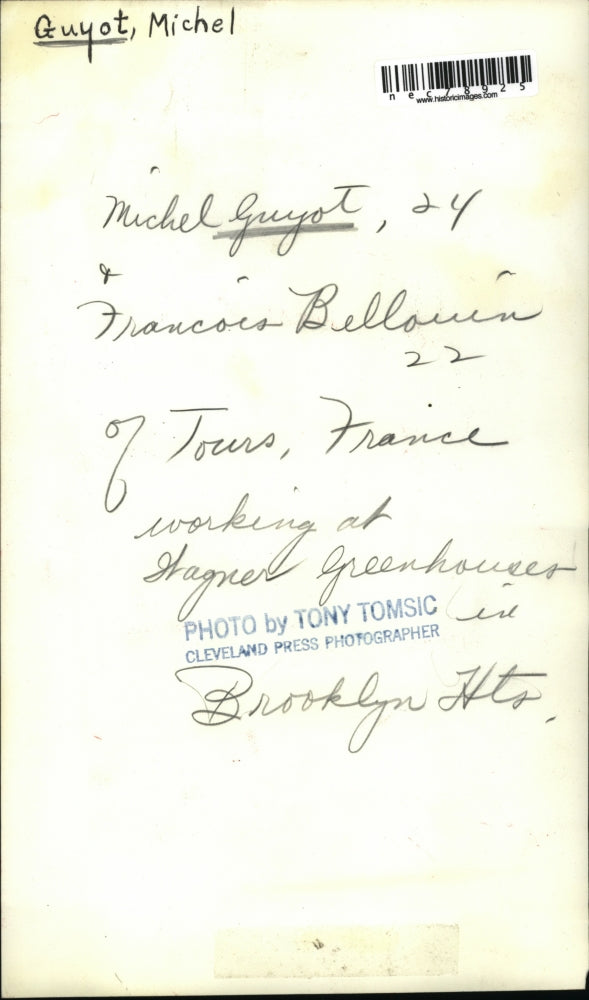 Guyot, Michel
nec78925
www.historicimages.com
Michel Guyot, 24
&
Francois Bellouin
22
of Tours, France
working at
Wagner Greenhouses
in
PHOTO by TONY TOMSIC
CLEVELAND PRESS PHOTOGRAPHER
Brooklyn Hts.